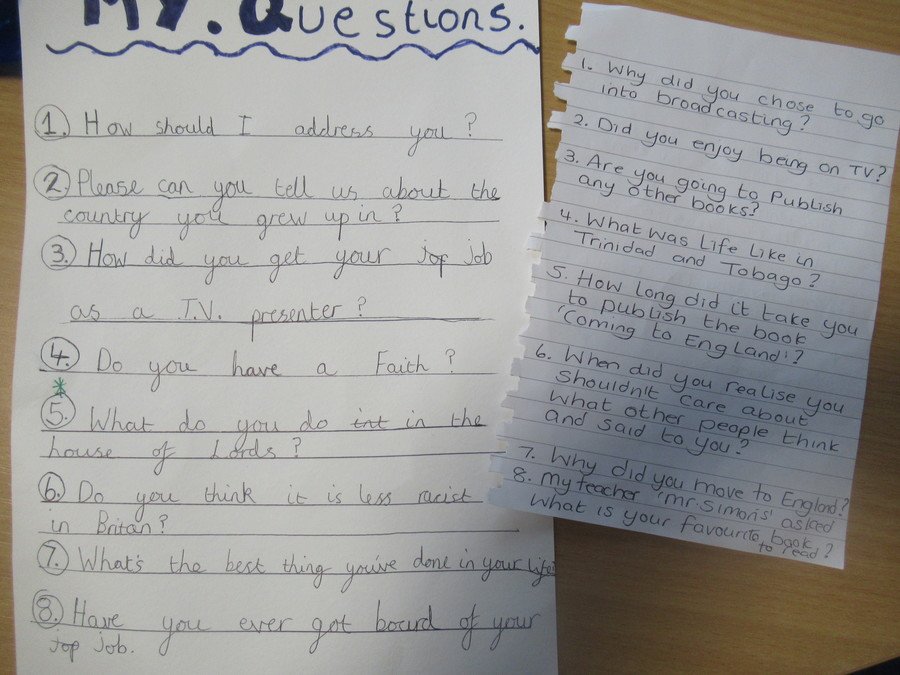 My. Questions.
1. How should I address you?
2. Please can you tell us about the
country you grew up in?
3. How did you get your jop job
as a T.V. presenter?
4. Do you have a Faith?
*
5. What do you do int in the
house of Lords?
6. Do you think it is less racist
in Britan?
7. What's the best thing you've done in your life?
8. Have you ever got bourd of your
jop job.
1. Why did you chose to go
into broadcasting?
2. Did you enjoy being on TV?
3. Are you going to Publish
any other books?
4. What was life like in
Trinidad and Tobago?
5. How long did it take you
to publish the book
'Coming to England'?
6. When did you realise you
shouldn't care about
what other people think
and said to you?
7. Why did you move to England?
8. my teacher 'mr. Simons' asked
What is your favourite book?
to read?